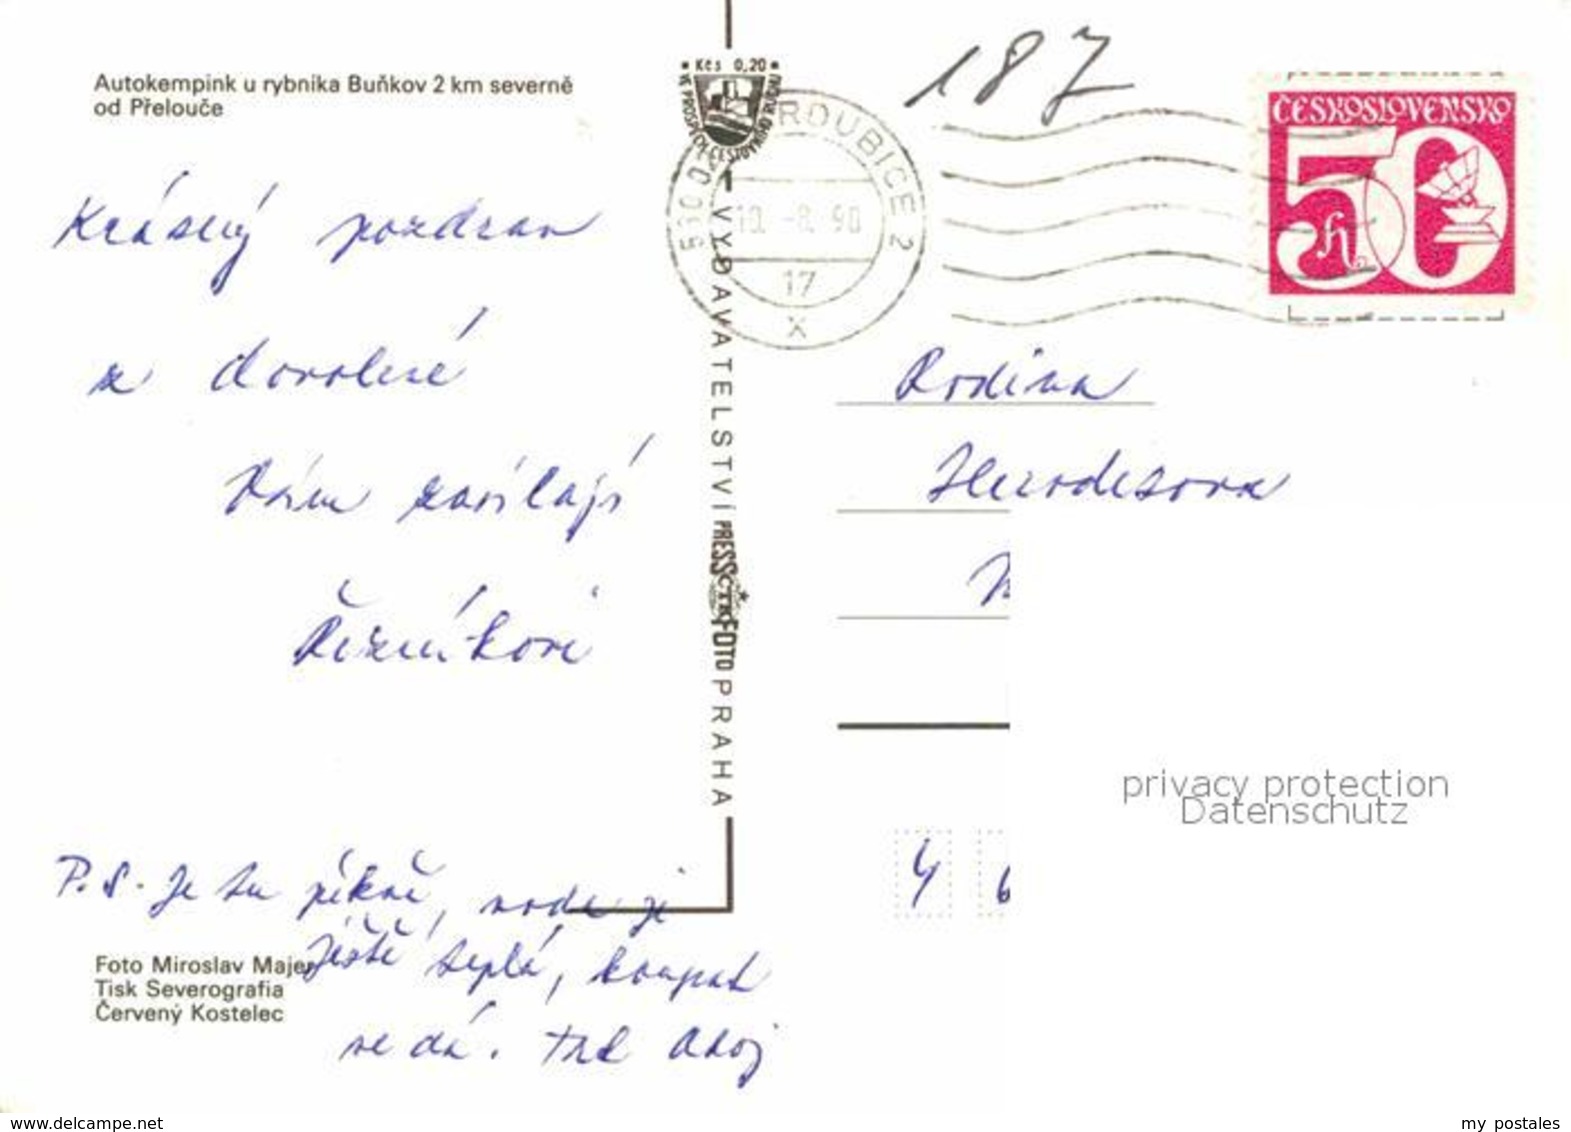 Autokempink u rybníka Buňkov 2 km severně
od Přelouče
Krásný pozdrav
z dovolené
Vám zasílají
Řezníkovi
P.S. Je tu pěkně, voda je
ještě teplá, koupat
se dá. Tak ahoj
Foto Miroslav Majer
Tisk Severografia
Červený Kostelec
Kčs 0,20
VE PROSPĚCH CESTOVNÍHO RUCHU
VYDAVATELSTVÍ PRESSFOTO PRAHA
ČTK
RDUBICE 2
530 0
10. -8. 90
17
x
187
ČESKOSLOVENSKO
50
h
Rodina
4 6
privacy protection
Datenschutz
www.delcampe.net
my postales